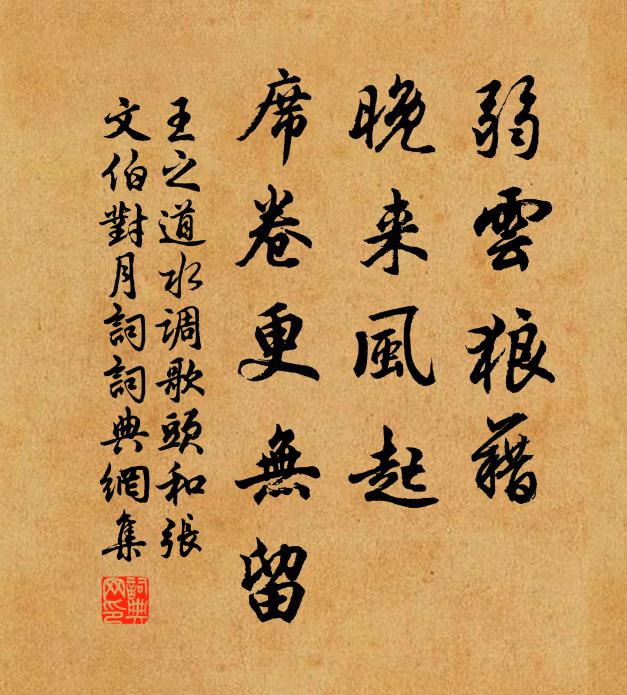 弱雲狼藉
晚来風起
席卷更無留
王之道水调歌頭和張
文伯對月詞詞典網集
詞典
网印